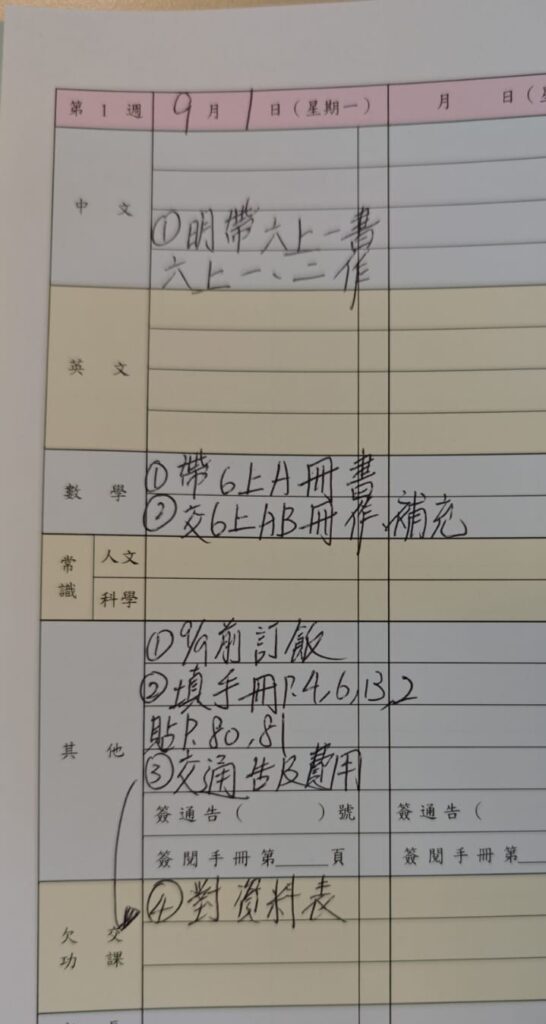 第 1 週 9月1日(星期一) 月 日(
中文
①明帶六上一書
六上一、二作
英文
數學
①帶6上A冊書
②交6上AB冊作、補充
常識
人文
科學
其他
①9/9前訂飯
②填手冊P.4,6,13,2
貼P.80,81
③交通告及費用
簽通告( )號 簽通告(
簽閱手冊第____頁 簽閱手冊第
④對資料表
欠交
功課